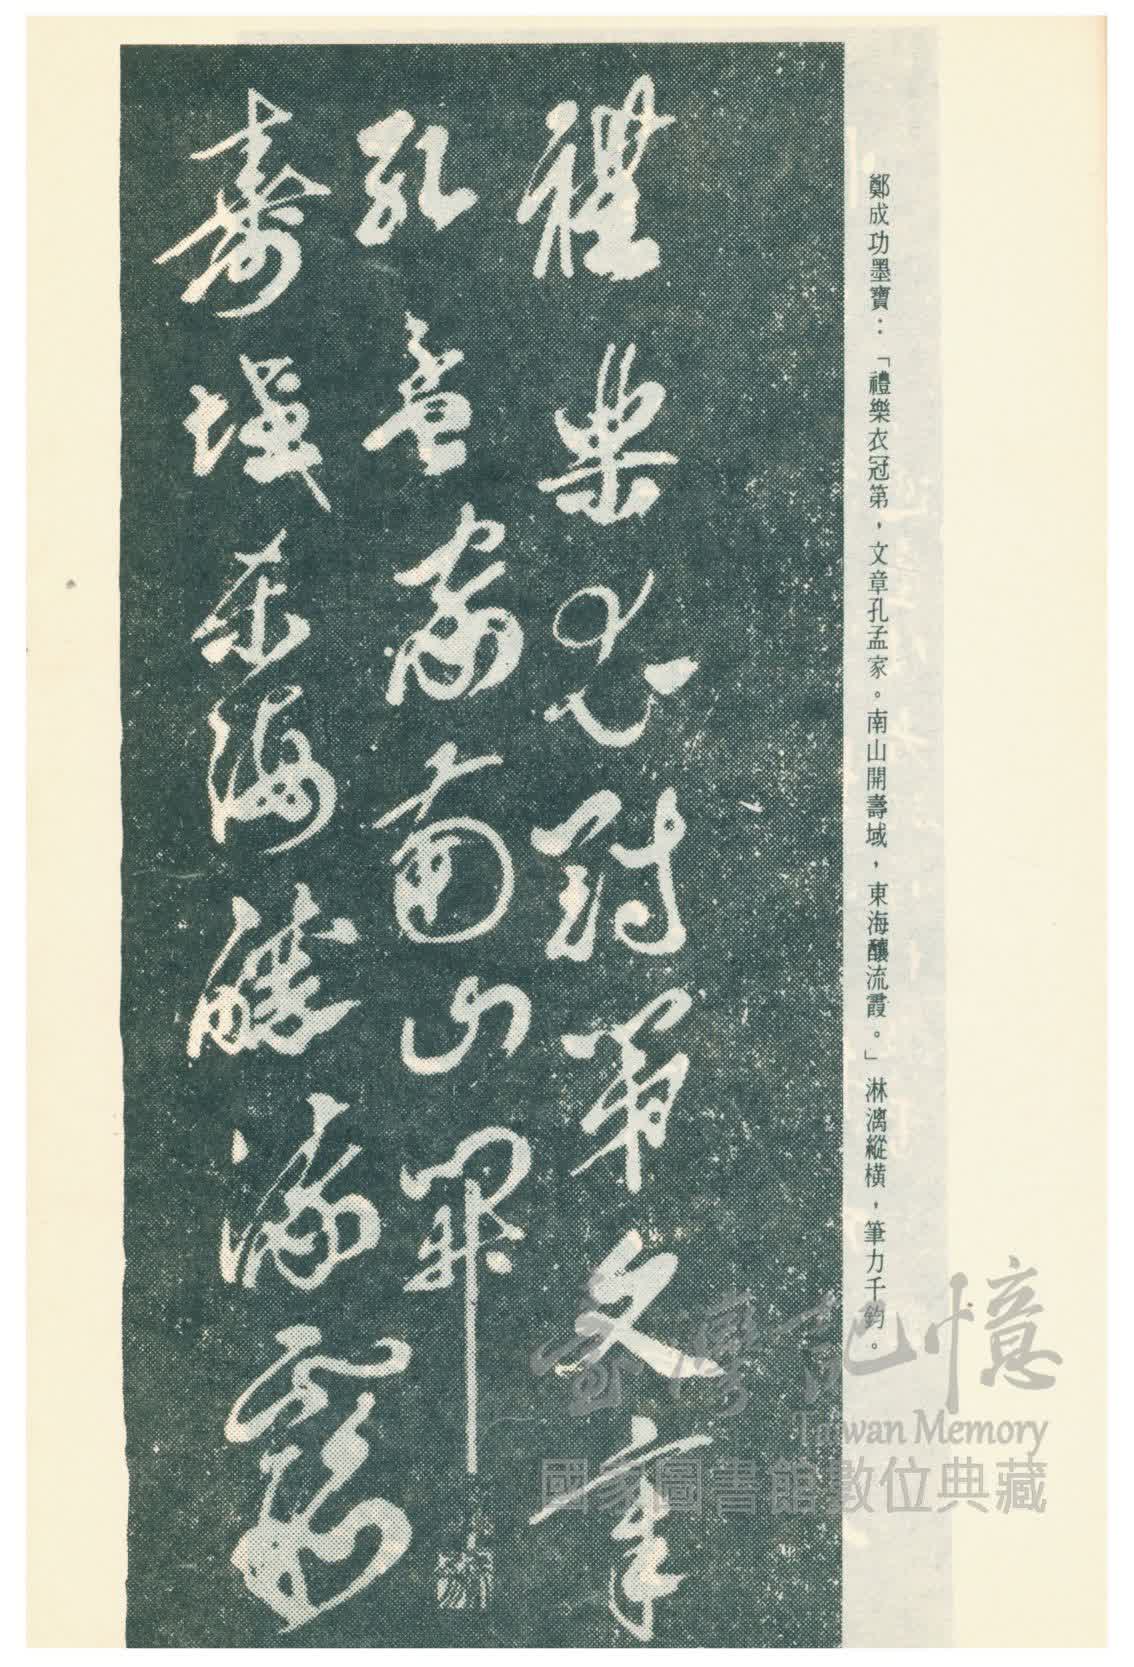 鄭成功墨寶：「禮樂衣冠第，文章孔孟家。南山開壽域，東海釀流霞。」淋漓縱橫，筆力千鈞。
禮樂衣冠第文章
孔孟家南山開
壽域東海釀流霞
台灣記憶
Taiwan Memory
國家圖書館數位典藏